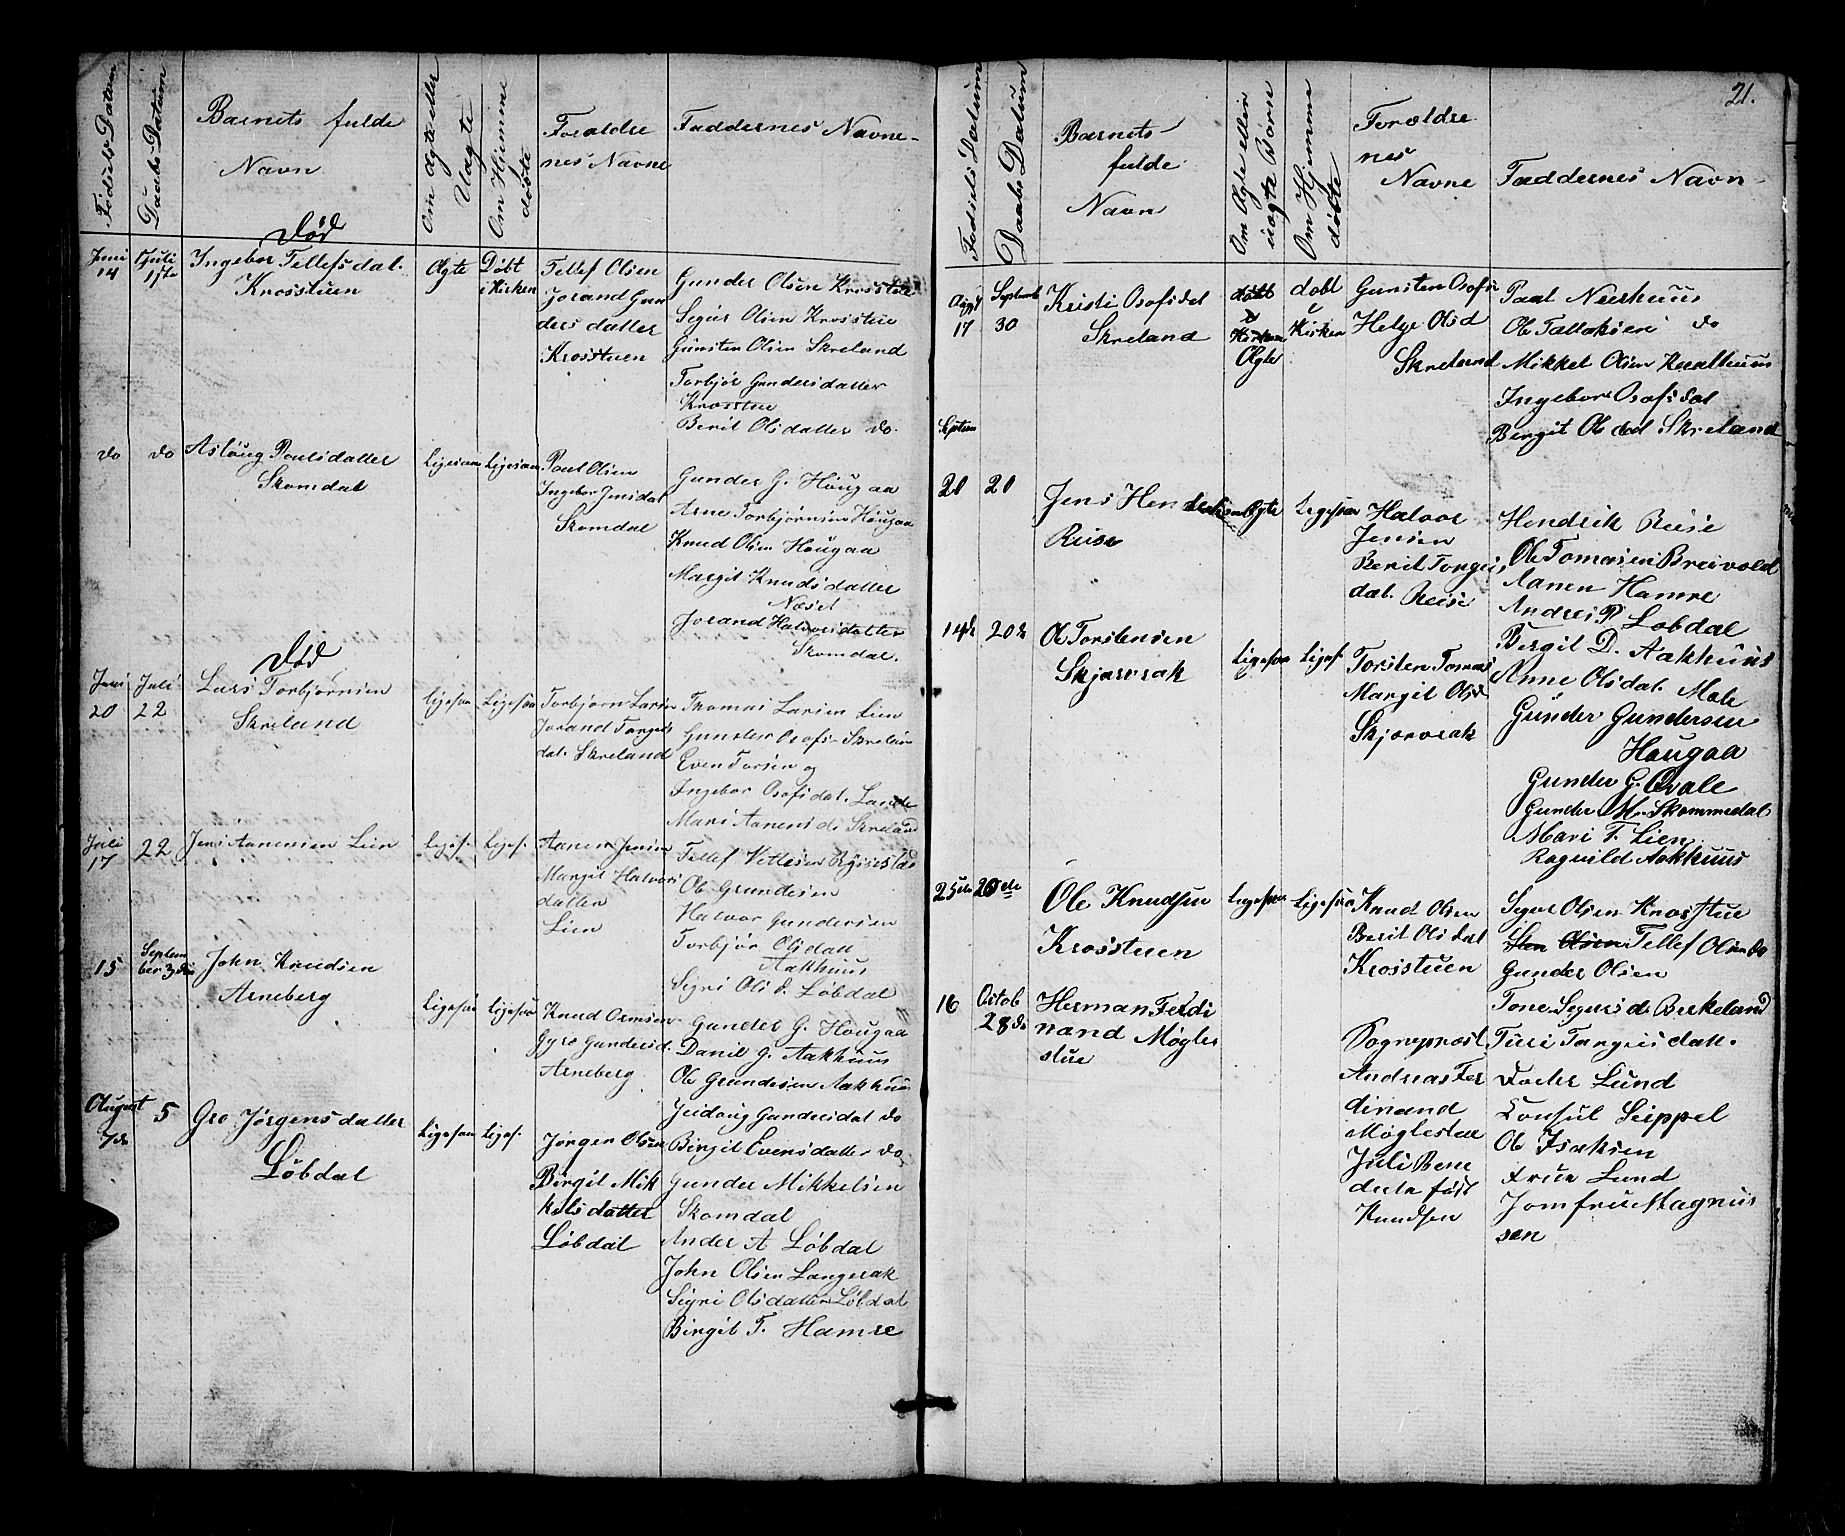 Fødsels Datum
Daabs Datum
Barnets fulde
Navn
Om ægte eller
Uægte
Om Hjemme
døbte
Forældre
nes Navne
Faddernes Navne
Død
Juni
14
Juli
1ste
Ingebor Tellefsdat.
Krosstuen
Ægte
Døbt
i Kirken
Tellef Olsen
Jorand Gun
ders datter
Krosstuen
Gunder Olsen Krosstue
Sigur Olsen Krosstue
Gunsten Olsen Skreland
Torbjør Gundersdatter
Krosstue
Berit Olsdatter do.
do
do
Aslaug Poulsdatter
Skomdal
Ligesaa
Ligesaa
Poul Olsen
Ingebor Jensdat
Skomdal
Gunder G. Hougaa
Arne Torbjørnsen Hougaa
Knud Olsen Hougaa
Margit Knudsdatter
Næset
Jorand Halvorsdatter
Skomdal.
Død
Juni
20
Juli
22
Lars Torbjørnsen
Skreland
ligesaa
Ligesaa
Torbjørn Larsen
Jorand Torgus
dat. Skreland
Thomas Larsen Lien
Gunder Osofs. Skreland
Even Torsen og
Ingebor Osofsdat. Lande
Mari Aanensd. Skreland
Juli
17
22
Jens Aanensen Lien
Ligesf.
Ligesf.
Aanen Jensen
Margit Halvors
datter
Lien
Tellef Vetlesen
Ole Gundersen
Halvor Gundersen
Torbjør Olsdatt
Aakhuus
Sigri Olsd. Løbdal
15
Septem
ber 3die
John Knudsen
Arneberg
Ligesaa
Ligesaa
Knud Ormsen
Gyro Gundersd.
Arneberg
Gunder G. Hougaa
Daniel G. Aakhuus
Ole Gundersen Aakhuus
Gundersdat do
Birgit Evensdatter do
August
7de
5
Gro Jørgensdatter
Løbdal
Ligesaa
Ligesf.
Jørgen Olsen
Birgit Mik
kelsdatter
Løbdal
Gunder Mikkelsen
Skomdal
Ander A Løbdal
John Olsen Langerak
Sigri Olsdatter Løbdal
Birgit T. Hamre
21.
Fødsels Datum
Daabs Datum
Barnets
fulde
Navn
Om Ægte eller
uægte Børn
Om Hjemme
døbte
Forældre
nes
Navne
Faddernes Navn
Augst
17
Septemb
30
Kristi Osofsdat
Skreland
døbt
i
Kirken
Ægte
døbt
i
Kirken
Gunsten Osofs
Helge Olsd
Skreland
Paal Neerhuus
Ole Tallaksen do
Mikkel Olsen
Ingebor Osofsdat
Birgit Olsdat Skreland
Septem
20
20
Jens Hendriksen
Reise
Ægte
Ligesaa
Halvor
Jensen
Berit Torgus
dat. Reise
Hendrik Reise
Ole Tomasen Breivold
Aanen Hamre
Andreis P Løbdal
Bergit D. Aakhuus
14de
20de
Ole Torstensen
Skjævrak
Ligesaa
Ligesf.
Torsten Tomas
Margit Olsd
Skjævrak
Anne Olsdat. Mole
Gunder Gundersen
Hougaa
Gunder G. Qvale
Gunder M. Skommedal
Mari T. Lien
Ragnild Aakhuus
25de
20de
Ole Knudsen
Krosstuen
Ligesaa
Ligesaa
Knud Olsen
Berit Olsdat
Krosstuen
Sigur Olsen Krosstue
Sten Olsen Tellef Olsen do
Gunder Olsen
Tone Sigursd. Birkeland
Turi Torgrisdatt.
16
Octob
28de
Herman Ferdi
nand Møgle
stue
Sogneprest
Andreas Fer
dinand
Møglestue
Juli Bene
decte født
Knudsen
Foster Lund
Consul Seippel
Ole Isaksen
Frue Lund
Jomfrue Magnus
sen